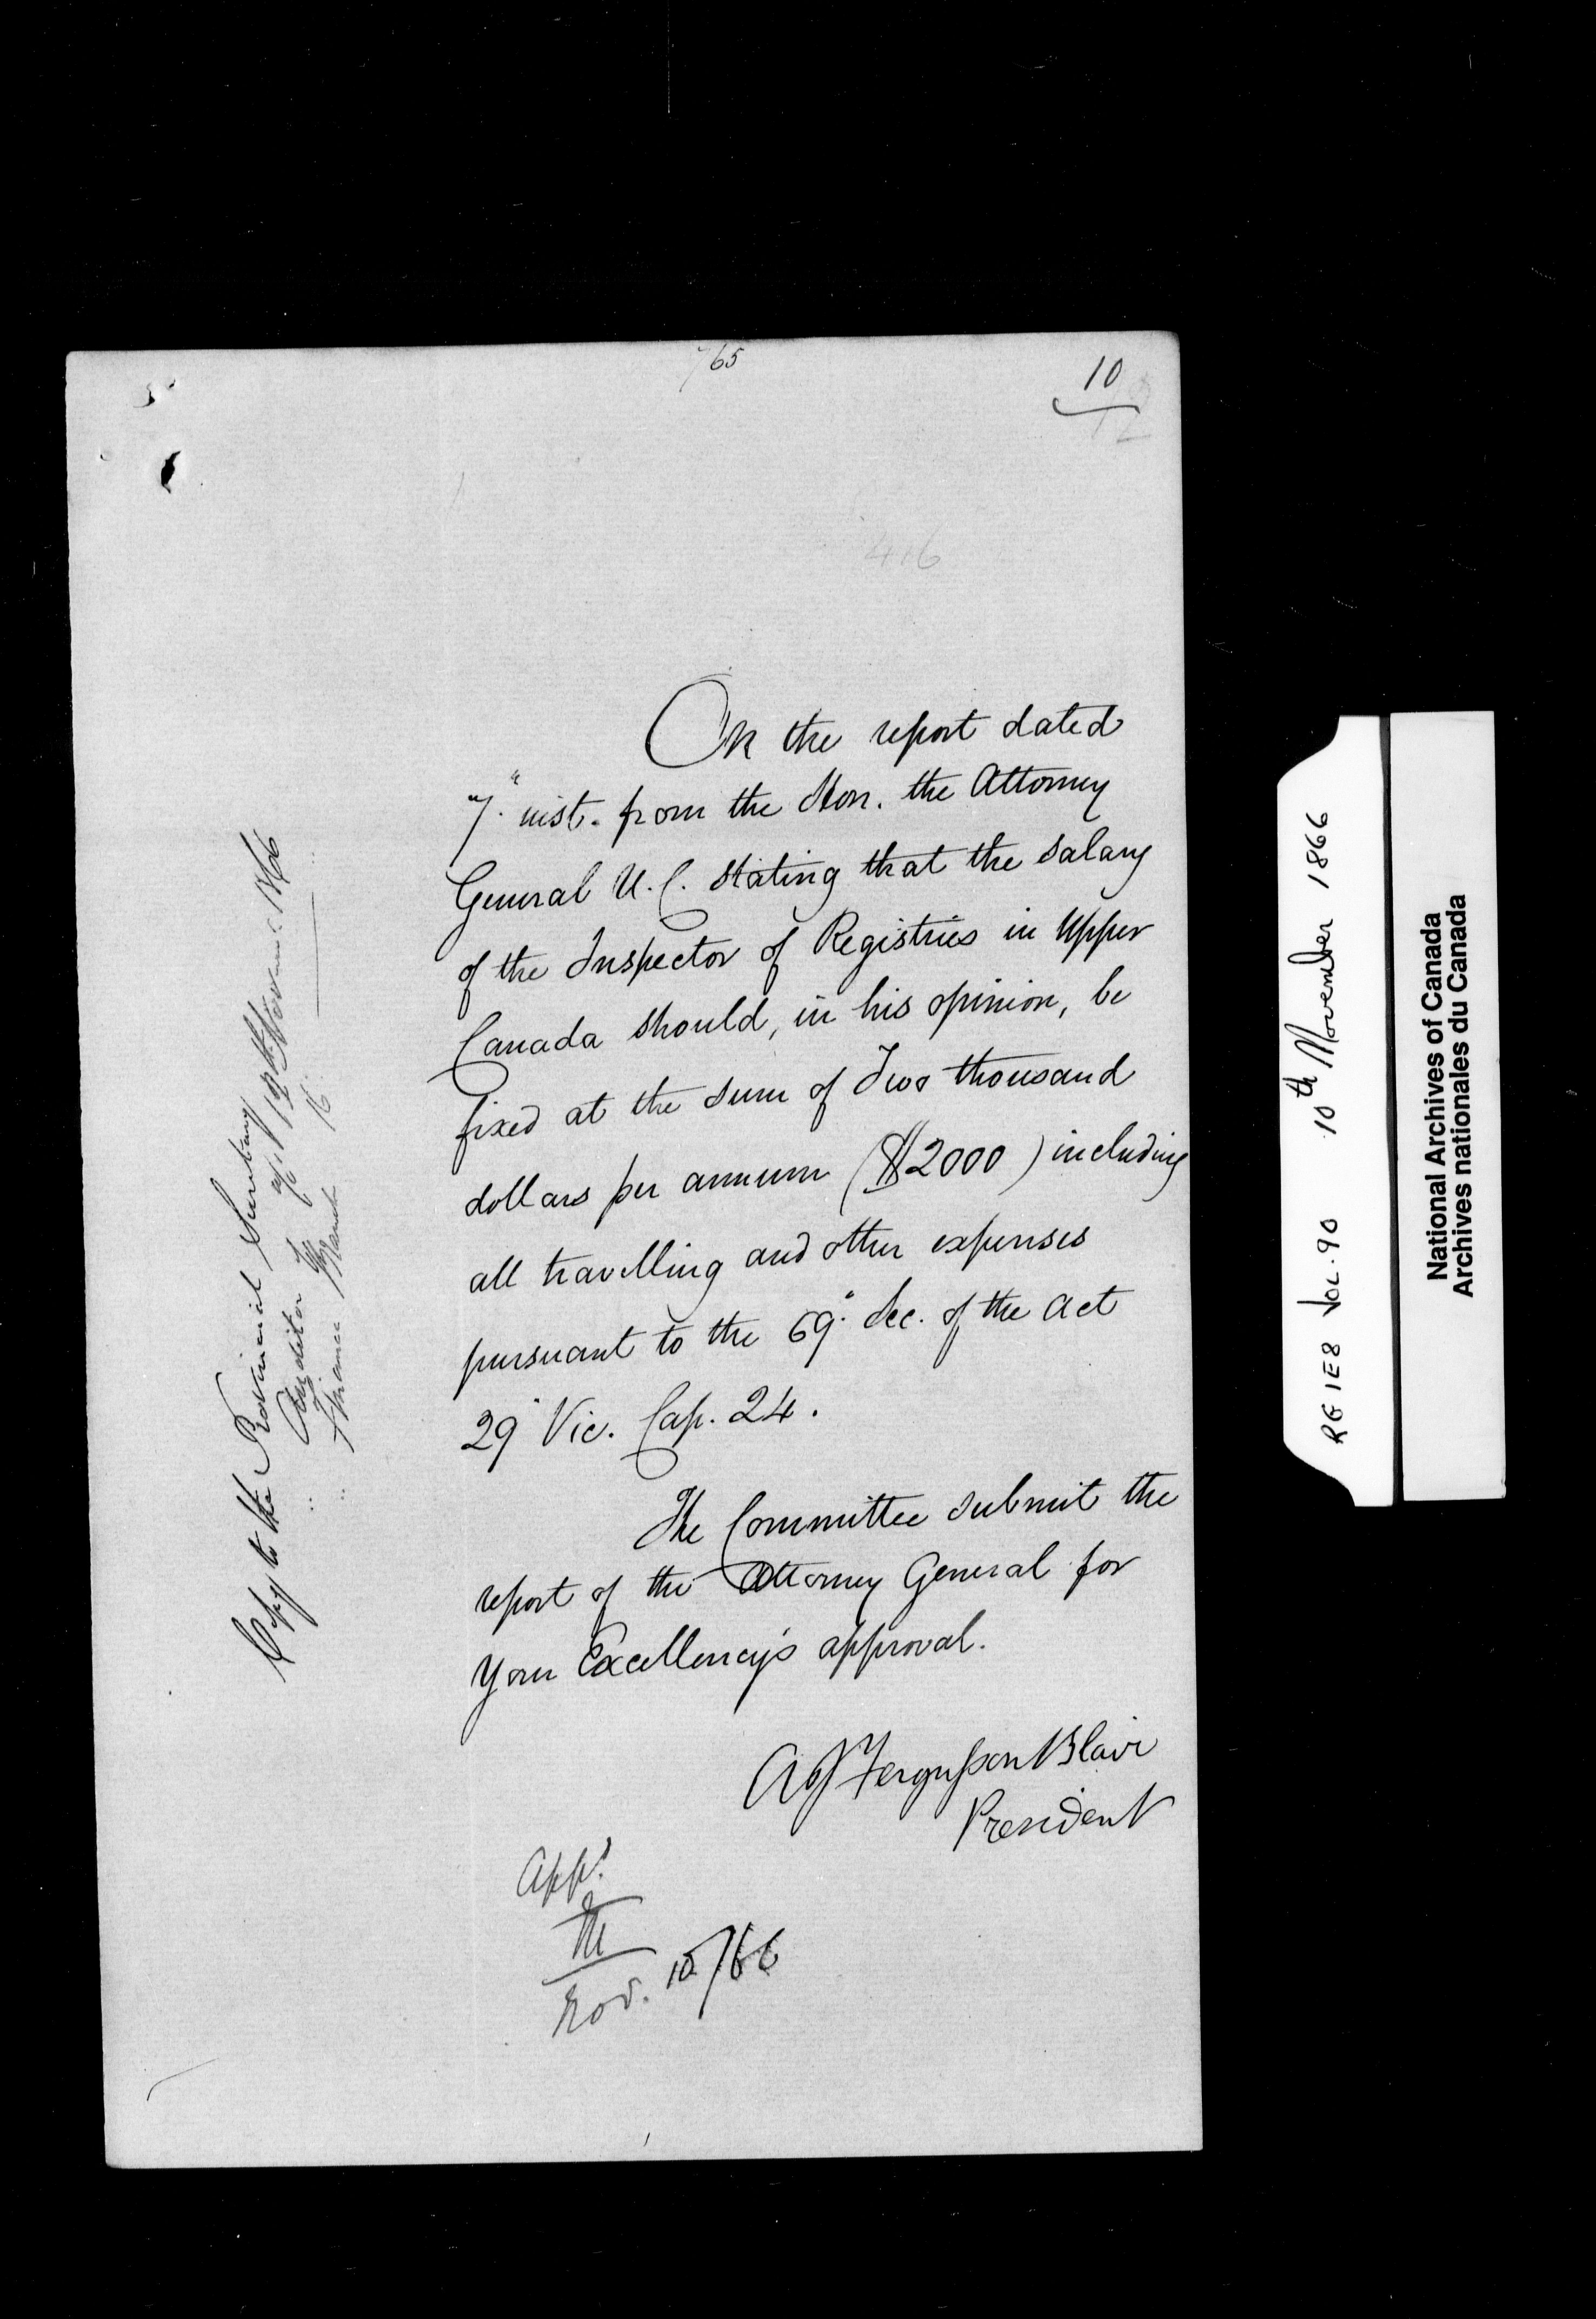 765
10
12
416
On the report dated
7" inst. from the Hon. the Attorney
General U.C. stating that the salary
of the Inspector of Registries in Upper
Canada should, in his opinion, be
fixed at the sum of Two thousand
dollars per annum ($2000) including
all travelling and other expenses
pursuant to the 69" Sec. of the Act
29" Vic. Cap. 24.
The Committee submit the
report of the Attorney General for
Your Excellency's approval.
A J Fergusson Blair
President
Appd.
M
Nov. 10/66
Copy to the Provincial Secretary
Auditor 12th November 1866
Finance March 16
RG 1E8 VOL. 90 10th November 1866
National Archives of Canada
Archives nationales du Canada